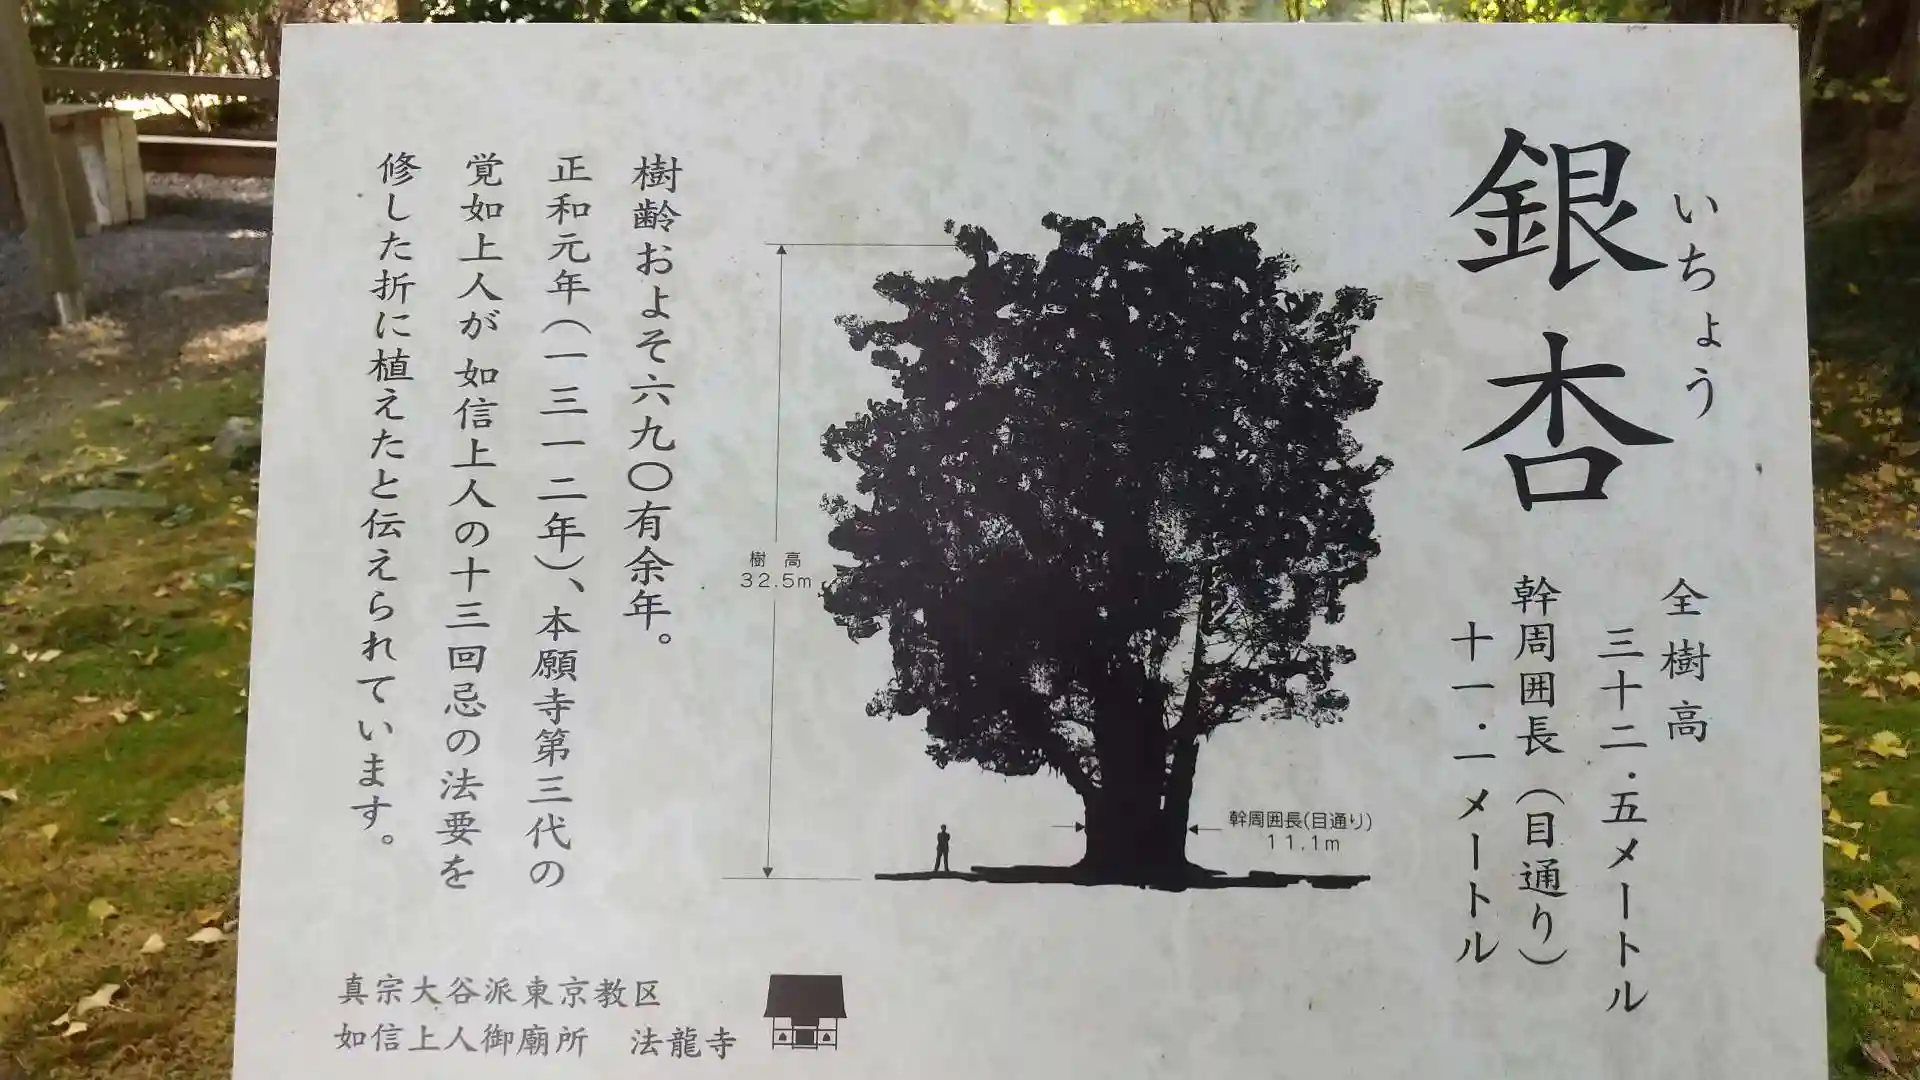 いちょう
銀杏
全樹高
三十二.五メートル
幹周囲長(目通り)
十一.一メートル
樹高
32.5m
幹周囲長(目通り)
11.1m
樹齢およそ六九〇有余年。
正和元年(一三一二年)、本願寺第三代の
覚如上人が 如信上人の十三回忌の法要を
修した折に植えたと伝えられています。
真宗大谷派東京教区
如信上人御廟所 法龍寺